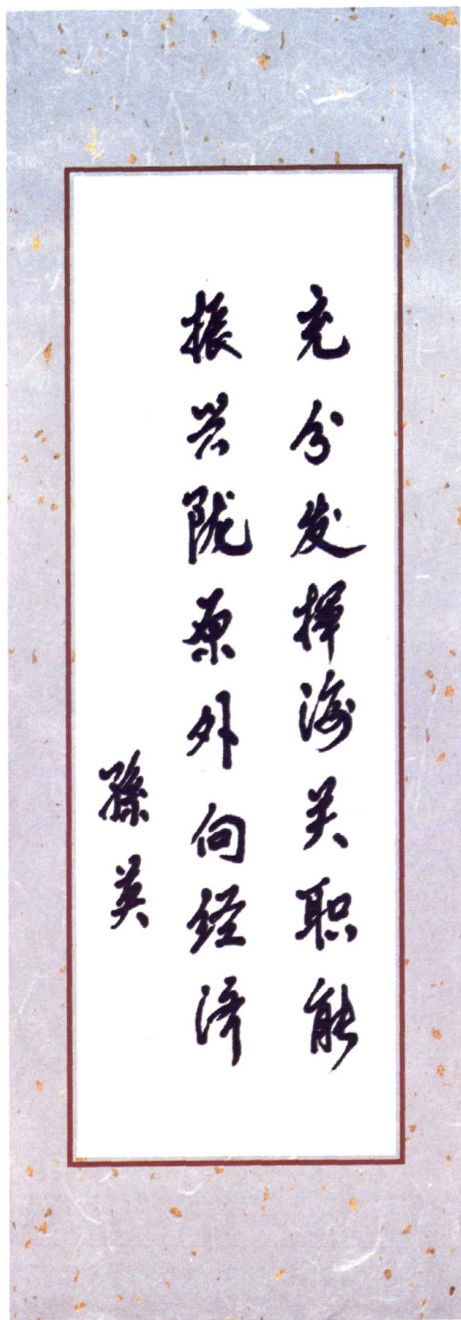 充分发挥海关职能
振兴陇原外向经济
孫英